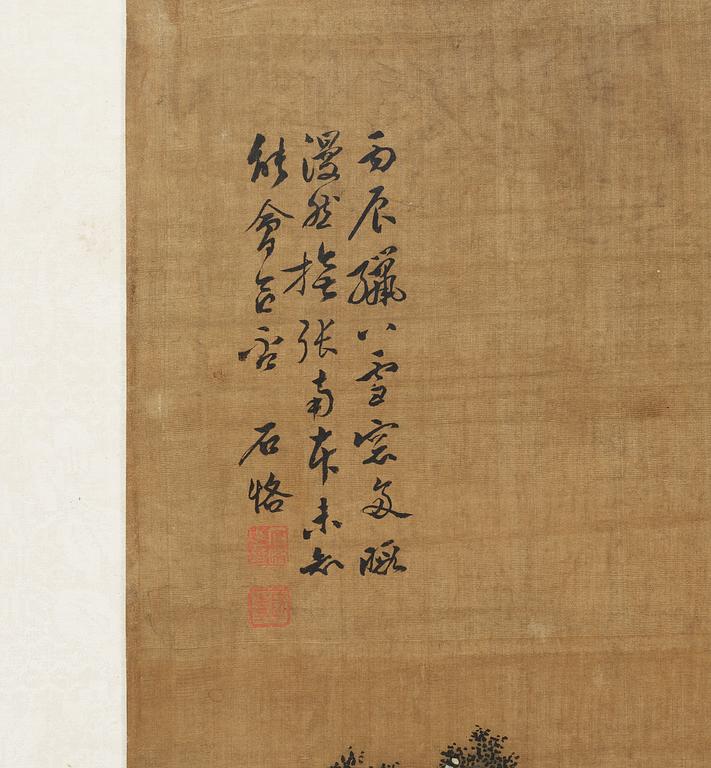 丙辰臘八雪窓多暇
漫然撫張南本未知
能會否 石恪